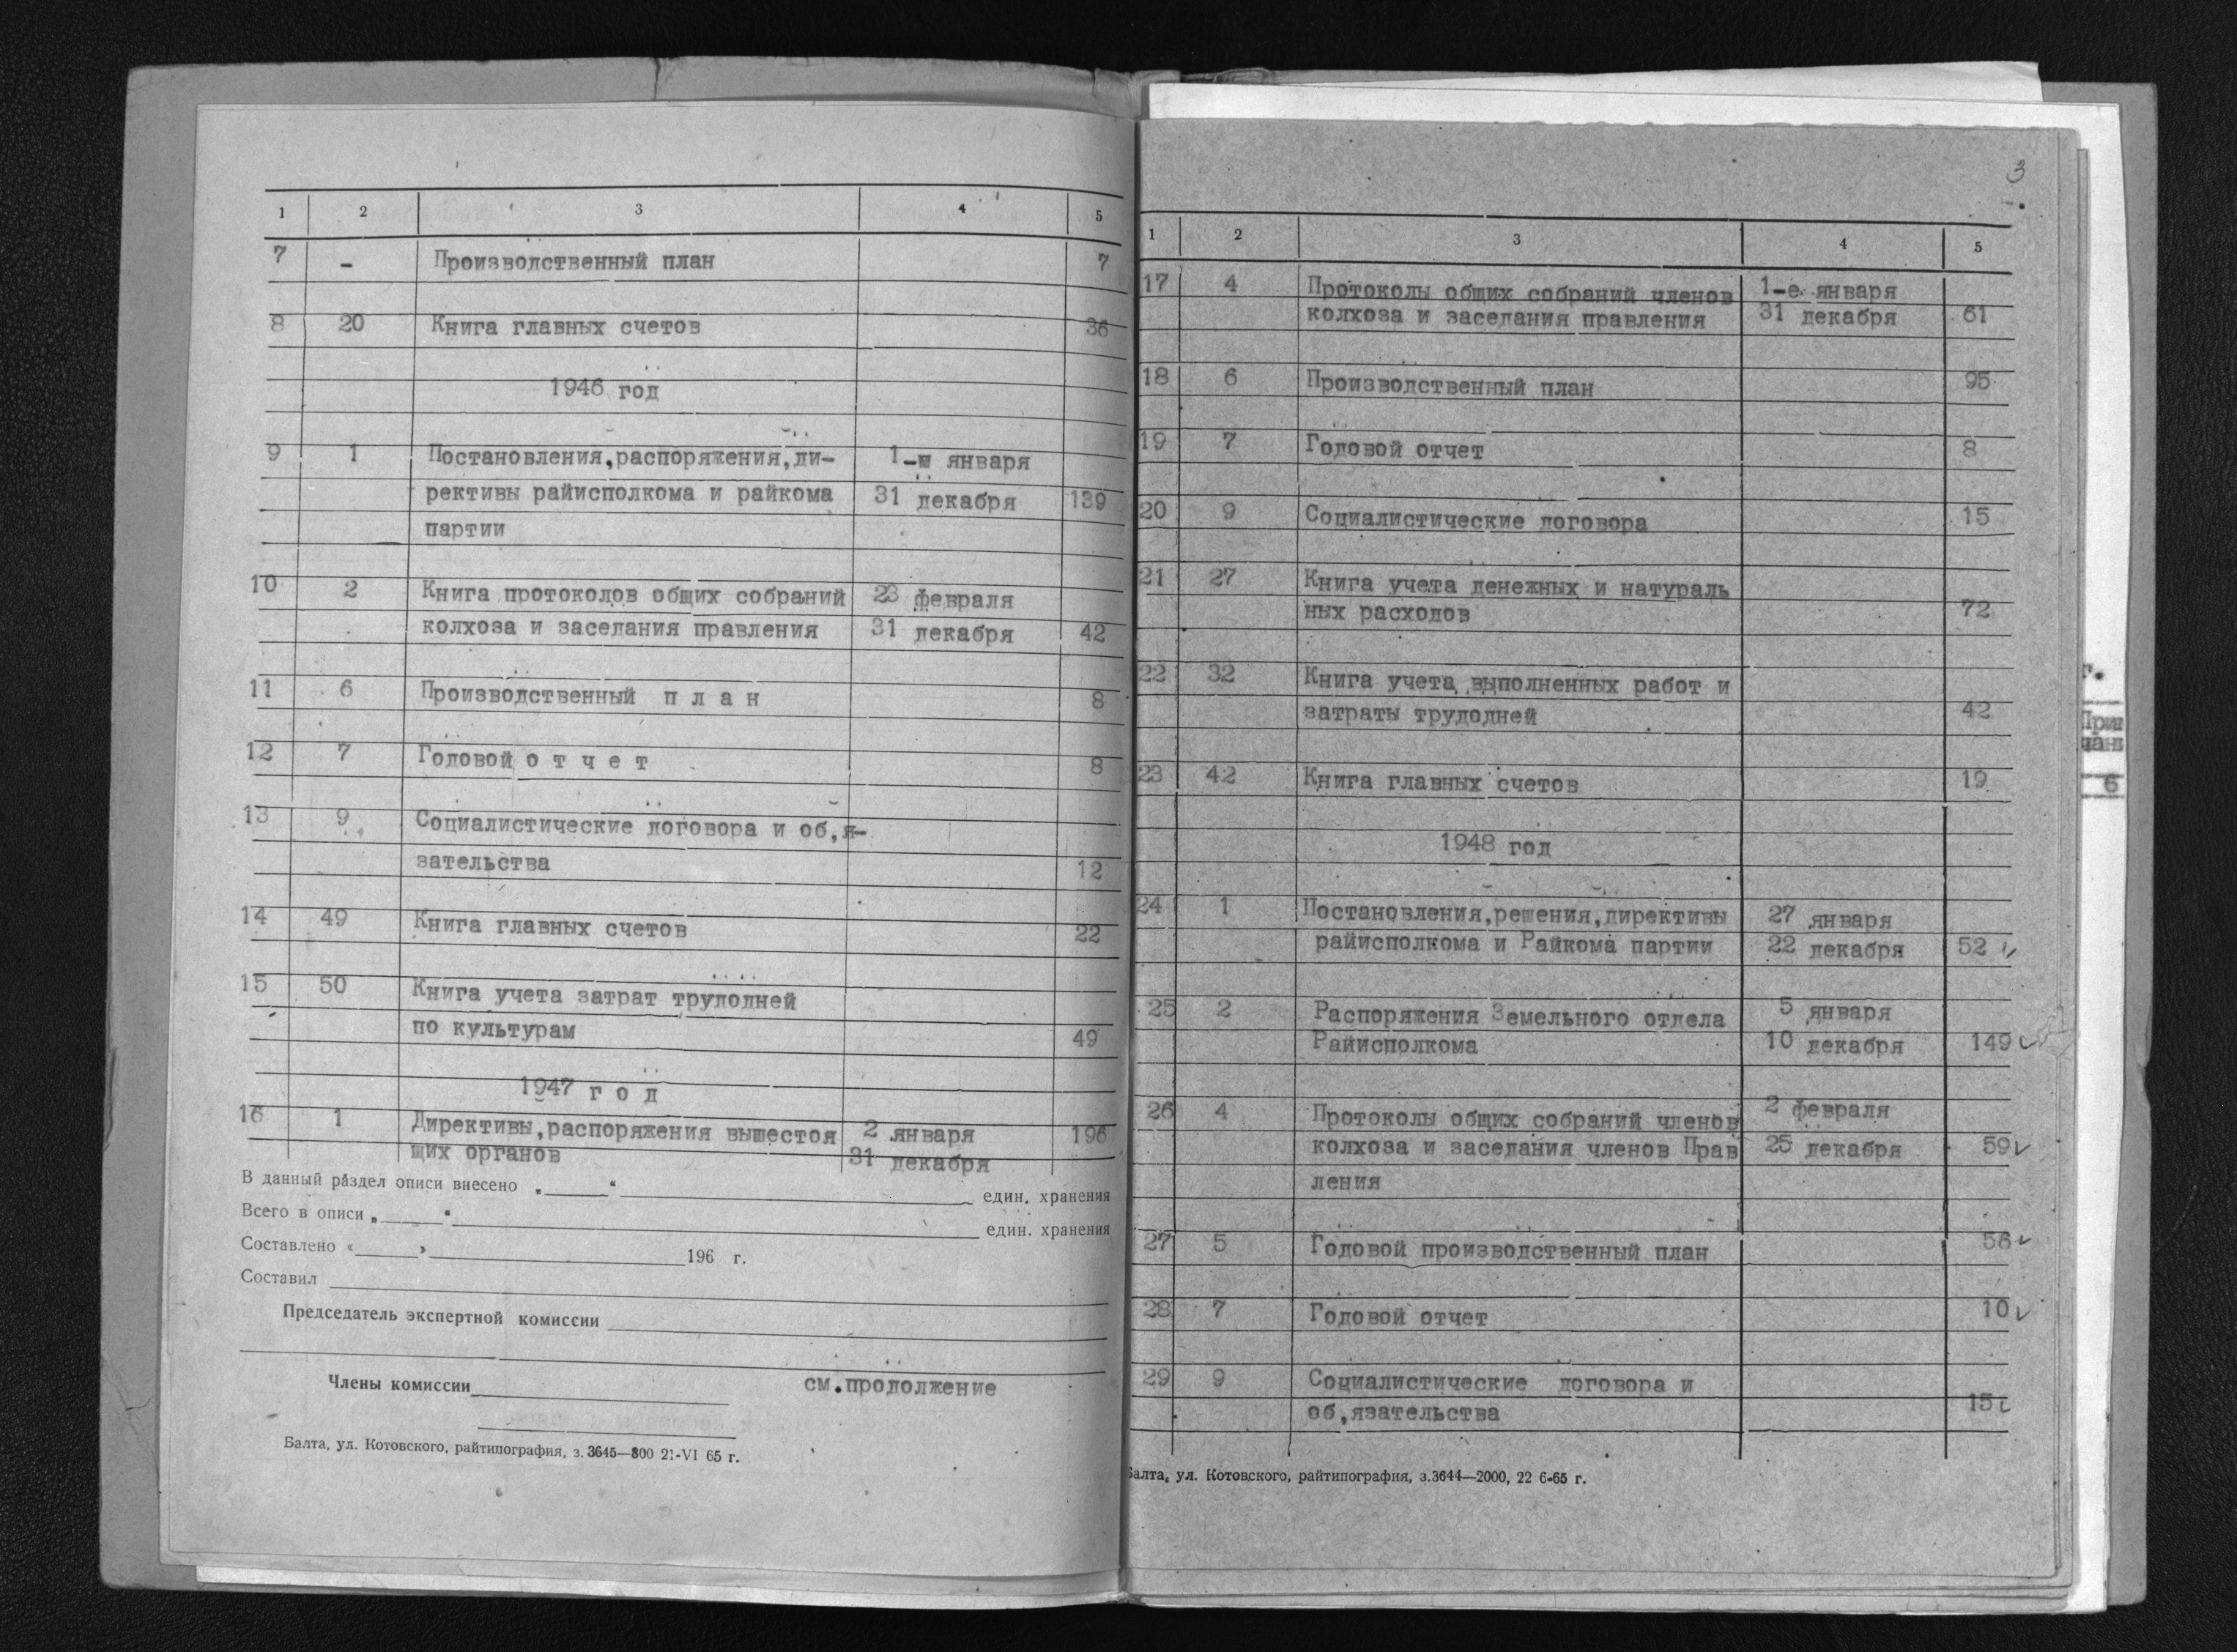 1 2 3 4 5
7 - Производственный план 7
8 20 Книга главных счетов 36
1946 год
9 1 Постановления,распоряжения,ди- 1-ш января
рективы райисполкома и райкома 31 декабря 139
партии
10 2 Книга протоколов общих собраний 23 февраля
колхоза и заседания правления 31 декабря 42
11 6 Производственный п л а н 8
12 7 Годовой о т ч е т 8
13 9 Социалистические договора и об,я-
зательства 12
14 49 Книга главных счетов 22
15 50 Книга учета затрат трудодней
по культурам 49
1947 г о д
16 1 Директивы,распоряжения вышестоя 2 января 196
щих органов 31 декабря
В данный раздел описи внесено „ “ един. хранения
Всего в описи „ “ един. хранения
Составлено « » 196 г.
Составил
Председатель экспертной комиссии
Члены комиссии см.продолжение
Балта, ул. Котовского, райтипография, з. 3645—800 21-VI 65 г.
3
1 2 3 4 5
17 4 Протоколы общих собраний членов 1-е января
колхоза и заседания правления 31 декабря 61
18 6 Производственный план 95
19 7 Годовой отчет 8
20 9 Социалистические договора 15
21 27 Книга учета денежных и натураль
ных расходов 72
22 32 Книга учета выполненных работ и
затраты трудодней 42
23 42 Книга главных счетов 19
1948 год
24 1 Постановления,решения,директивы 27 января
райисполкома и Райкома партии 22 декабря 52
25 2 Распоряжения Земельного отдела 5 января
Райисполкома 10 декабря 149
26 4 Протоколы общих собраний членов 2 февраля
колхоза и заседания членов Прав 25 декабря 59
ления
27 5 Годовой производственный план 56
28 7 Годовой отчет 10
29 9 Социалистические договора и
об,язательства 15
Балта, ул. Котовского, райтипография, з.3644—2000, 22 6-65 г.
г.
6